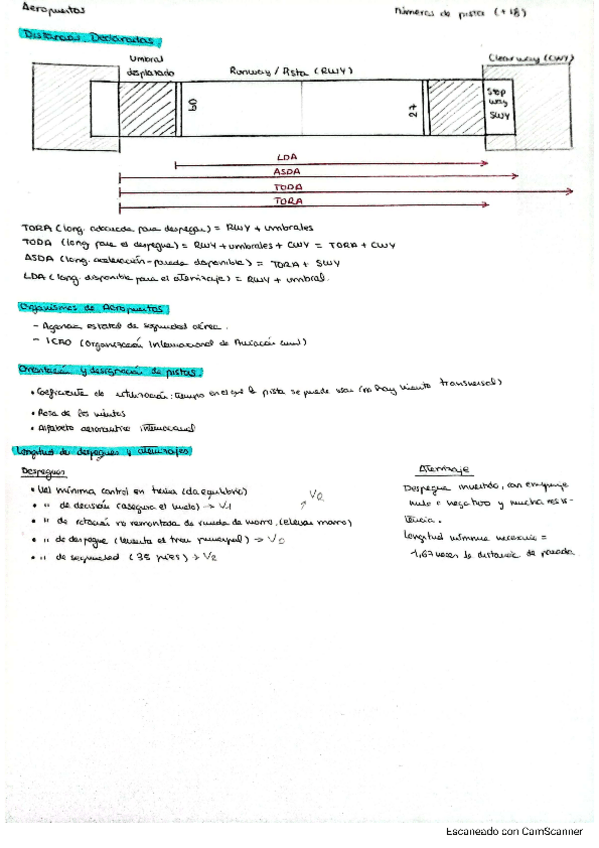 Aeropuertos
Números de pista (+18)
Distancias Declaradas
Umbral desplazado
Runway / Pista (RWY)
Clearway (CWY)
09
27
Stop way SWY
LDA
ASDA
TODA
TORA
TORA (long. adecuada para despegar) = RWY + umbrales
TODA (long para el despegue) = RWY + umbrales + CWY = TORA + CWY
ASDA (long. aceleración-parada disponible) = TORA + SWY
LDA (long. disponible para el aterrizaje) = RWY + umbral.
Organismos de Aeropuertos
- Agencia estatal de seguridad aérea.
- ICAO (Organización Internacional de Aviación Civil)
Orientación y designación de pistas
• Coeficiente de utilización: tiempo en el que la pista se puede usar (no hay viento transversal)
• Rosa de los vientos
• Alfabeto aeronautico internacional
Longitud de despegues y aterrizajes
Despegues
• Vel mínima control en tierra (da equilibrio)
V0
• " de decisión (asegura el vuelo) → V1
• " de rotación no remontada de rueda de morro, (elevar morro)
• " de despegue (levanta el tren principal) → V0
• " de seguridad (35 pies) → V2
Aterrizaje
Despegue invertido, con empuje
nulo o negativo y mucha resis-
tencia.
Longitud mínima necesaria =
1,67 veces la distancia de parada.
Escaneado con CamScanner